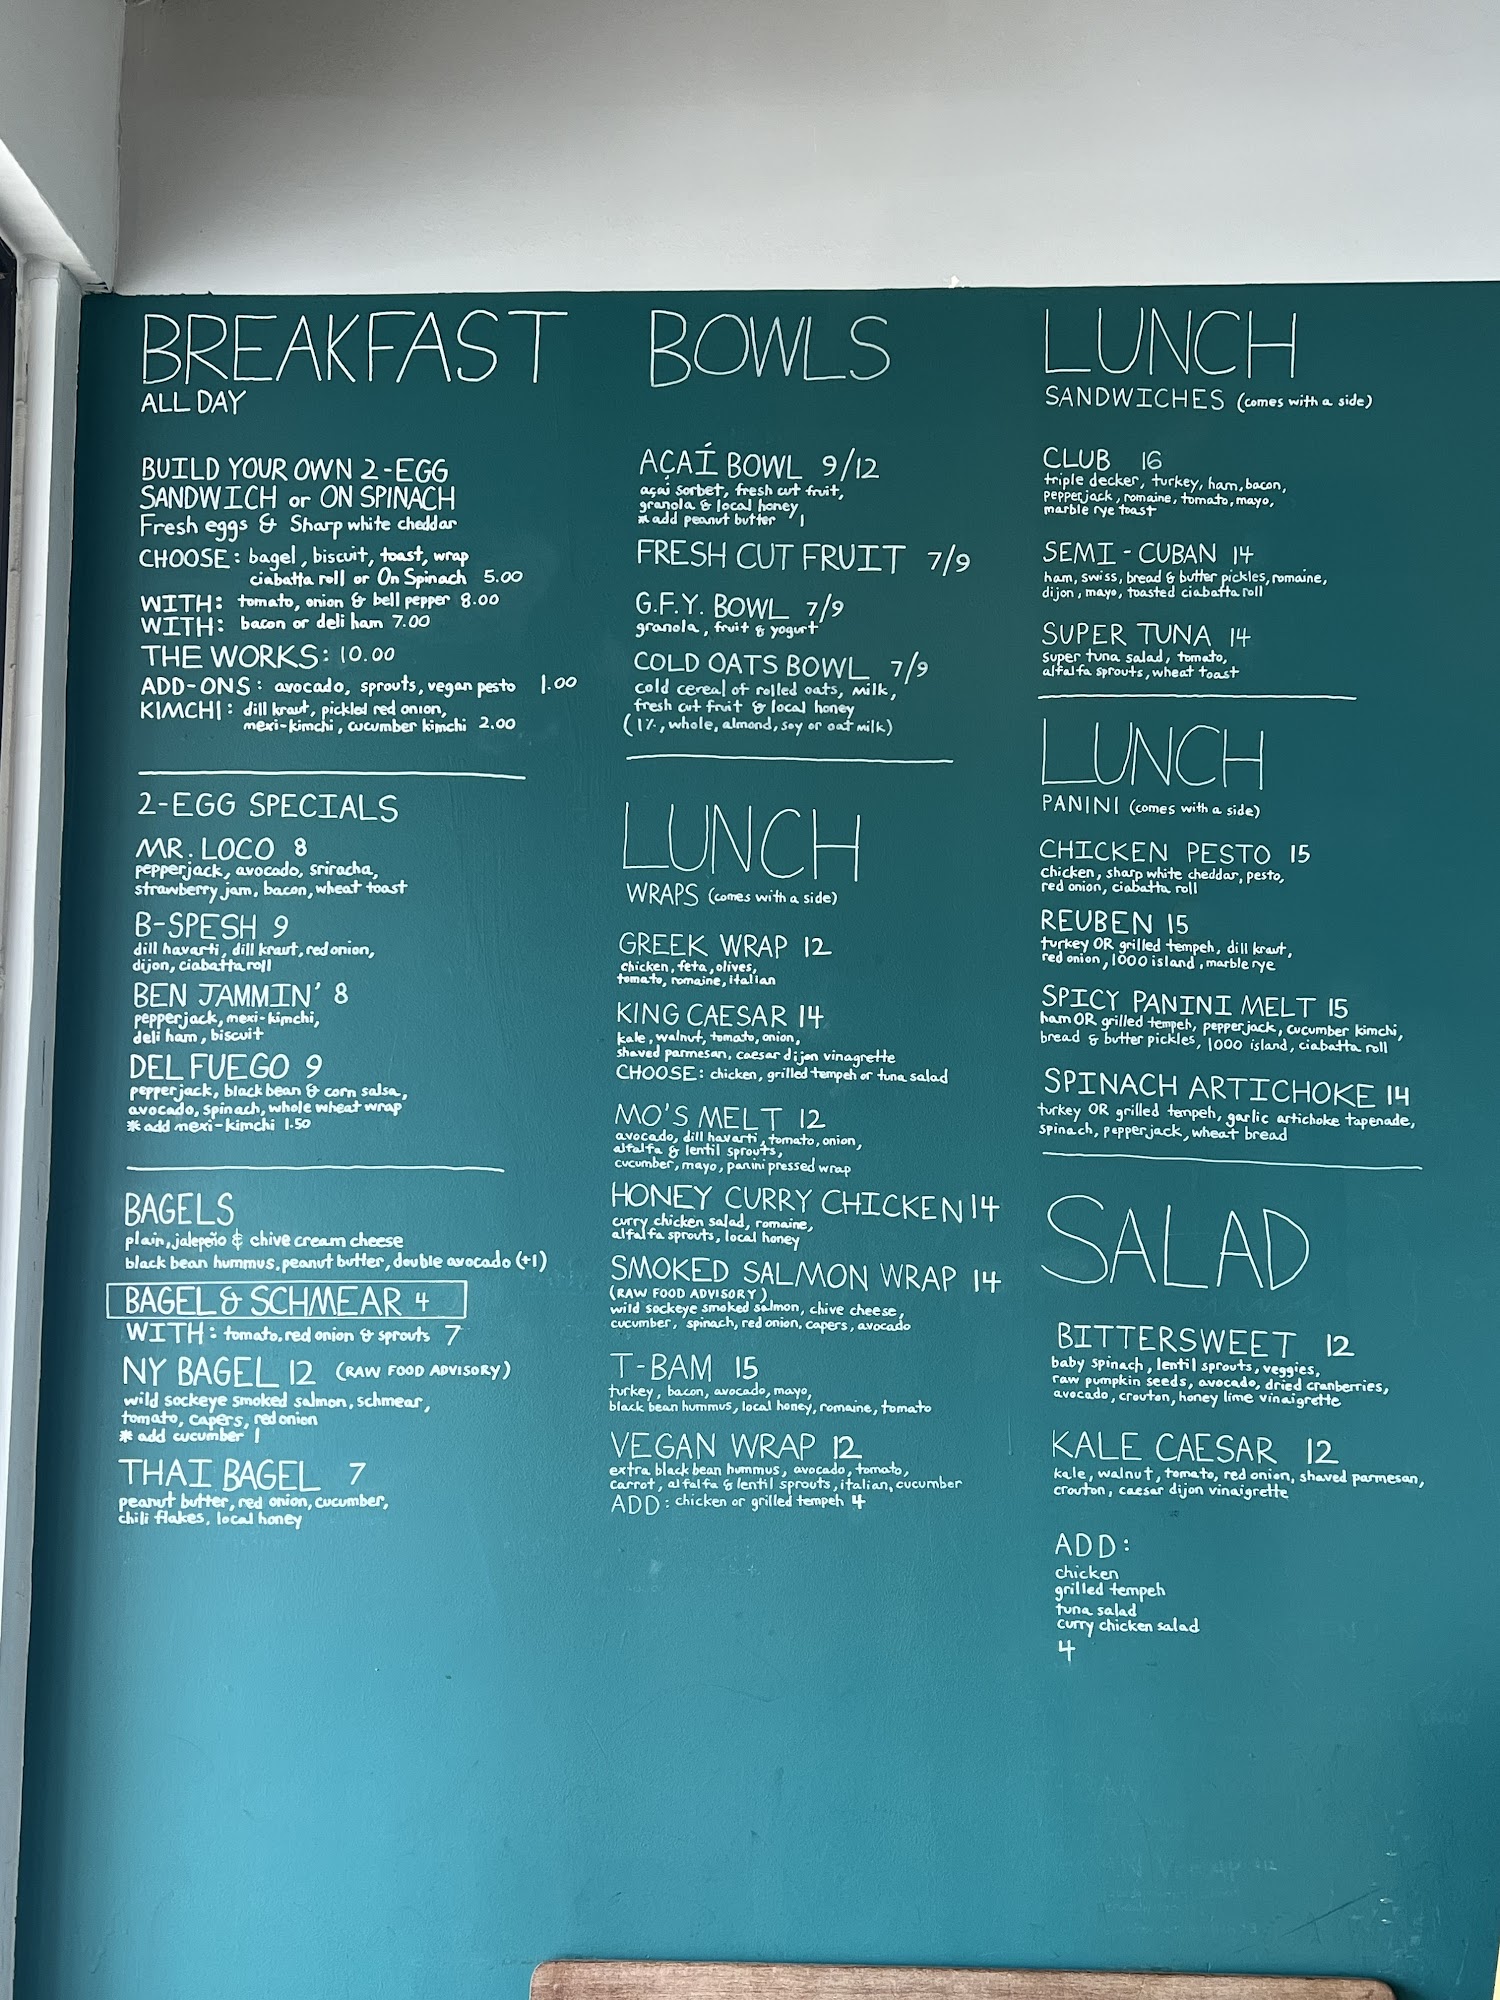 BREAKFAST
ALL DAY
BUILD YOUR OWN 2-EGG
SANDWICH or ON SPINACH
Fresh eggs & Sharp white cheddar
CHOOSE: bagel, biscuit, toast, wrap
ciabatta roll or On Spinach 5.00
WITH: tomato, onion & bell pepper 8.00
WITH: bacon or deli ham 7.00
THE WORKS: 10.00
ADD-ONS: avocado, sprouts, vegan pesto 1.00
KIMCHI: dill kraut, pickled red onion,
mexi-kimchi, cucumber kimchi 2.00
2-EGG SPECIALS
MR. LOCO 8
pepperjack, avocado, sriracha,
strawberry jam, bacon, wheat toast
B-SPESH 9
dill havarti, dill kraut, red onion,
dijon, ciabatta roll
BEN JAMMIN' 8
pepperjack, mexi-kimchi,
deli ham, biscuit
DEL FUEGO 9
pepperjack, black bean & corn salsa,
avocado, spinach, whole wheat wrap
* add mexi-kimchi 1.50
BAGELS
plain, jalepeño & chive cream cheese
black bean hummus, peanut butter, double avocado (+1)
BAGEL & SCHMEAR 4
WITH: tomato, red onion & sprouts 7
NY BAGEL 12 (RAW FOOD ADVISORY)
wild sockeye smoked salmon, schmear,
tomato, capers, red onion
* add cucumber 1
THAI BAGEL 7
peanut butter, red onion, cucumber,
chili flakes, local honey
BOWLS
AÇAÍ BOWL 9/12
açaí sorbet, fresh cut fruit,
granola & local honey
* add peanut butter 1
FRESH CUT FRUIT 7/9
G.F.Y. BOWL 7/9
granola, fruit & yogurt
COLD OATS BOWL 7/9
cold cereal of rolled oats, milk,
fresh cut fruit & local honey
(1%, whole, almond, soy or oat milk)
LUNCH
WRAPS (comes with a side)
GREEK WRAP 12
chicken, feta, olives,
tomato, romaine, italian
KING CAESAR 14
kale, walnut, tomato, onion,
shaved parmesan, caesar dijon vinagrette
CHOOSE: chicken, grilled tempeh or tuna salad
MO'S MELT 12
avocado, dill havarti, tomato, onion,
alfalfa & lentil sprouts,
cucumber, mayo, panini pressed wrap
HONEY CURRY CHICKEN 14
curry chicken salad, romaine,
alfalfa sprouts, local honey
SMOKED SALMON WRAP 14
(RAW FOOD ADVISORY)
wild sockeye smoked salmon, chive cheese,
cucumber, spinach, red onion, capers, avocado
T-BAM 15
turkey, bacon, avocado, mayo,
black bean hummus, local honey, romaine, tomato
VEGAN WRAP 12
extra black bean hummus, avocado, tomato,
carrot, alfalfa & lentil sprouts, italian, cucumber
ADD: chicken or grilled tempeh 4
LUNCH
SANDWICHES (comes with a side)
CLUB 16
triple decker, turkey, ham, bacon,
pepperjack, romaine, tomato, mayo,
marble rye toast
SEMI-CUBAN 14
ham, swiss, bread & butter pickles, romaine,
dijon, mayo, toasted ciabatta roll
SUPER TUNA 14
super tuna salad, tomato,
alfalfa sprouts, wheat toast
LUNCH
PANINI (comes with a side)
CHICKEN PESTO 15
chicken, sharp white cheddar, pesto,
red onion, ciabatta roll
REUBEN 15
turkey OR grilled tempeh, dill kraut,
red onion, 1000 island, marble rye
SPICY PANINI MELT 15
ham OR grilled tempeh, pepperjack, cucumber kimchi,
bread & butter pickles, 1000 island, ciabatta roll
SPINACH ARTICHOKE 14
turkey OR grilled tempeh, garlic artichoke tapenade,
spinach, pepperjack, wheat bread
SALAD
BITTERSWEET 12
baby spinach, lentil sprouts, veggies,
raw pumpkin seeds, avocado, dried cranberries,
avocado, crouton, honey lime vinaigrette
KALE CAESAR 12
kale, walnut, tomato, red onion, shaved parmesan,
crouton, caesar dijon vinaigrette
ADD:
chicken
grilled tempeh
tuna salad
curry chicken salad
4